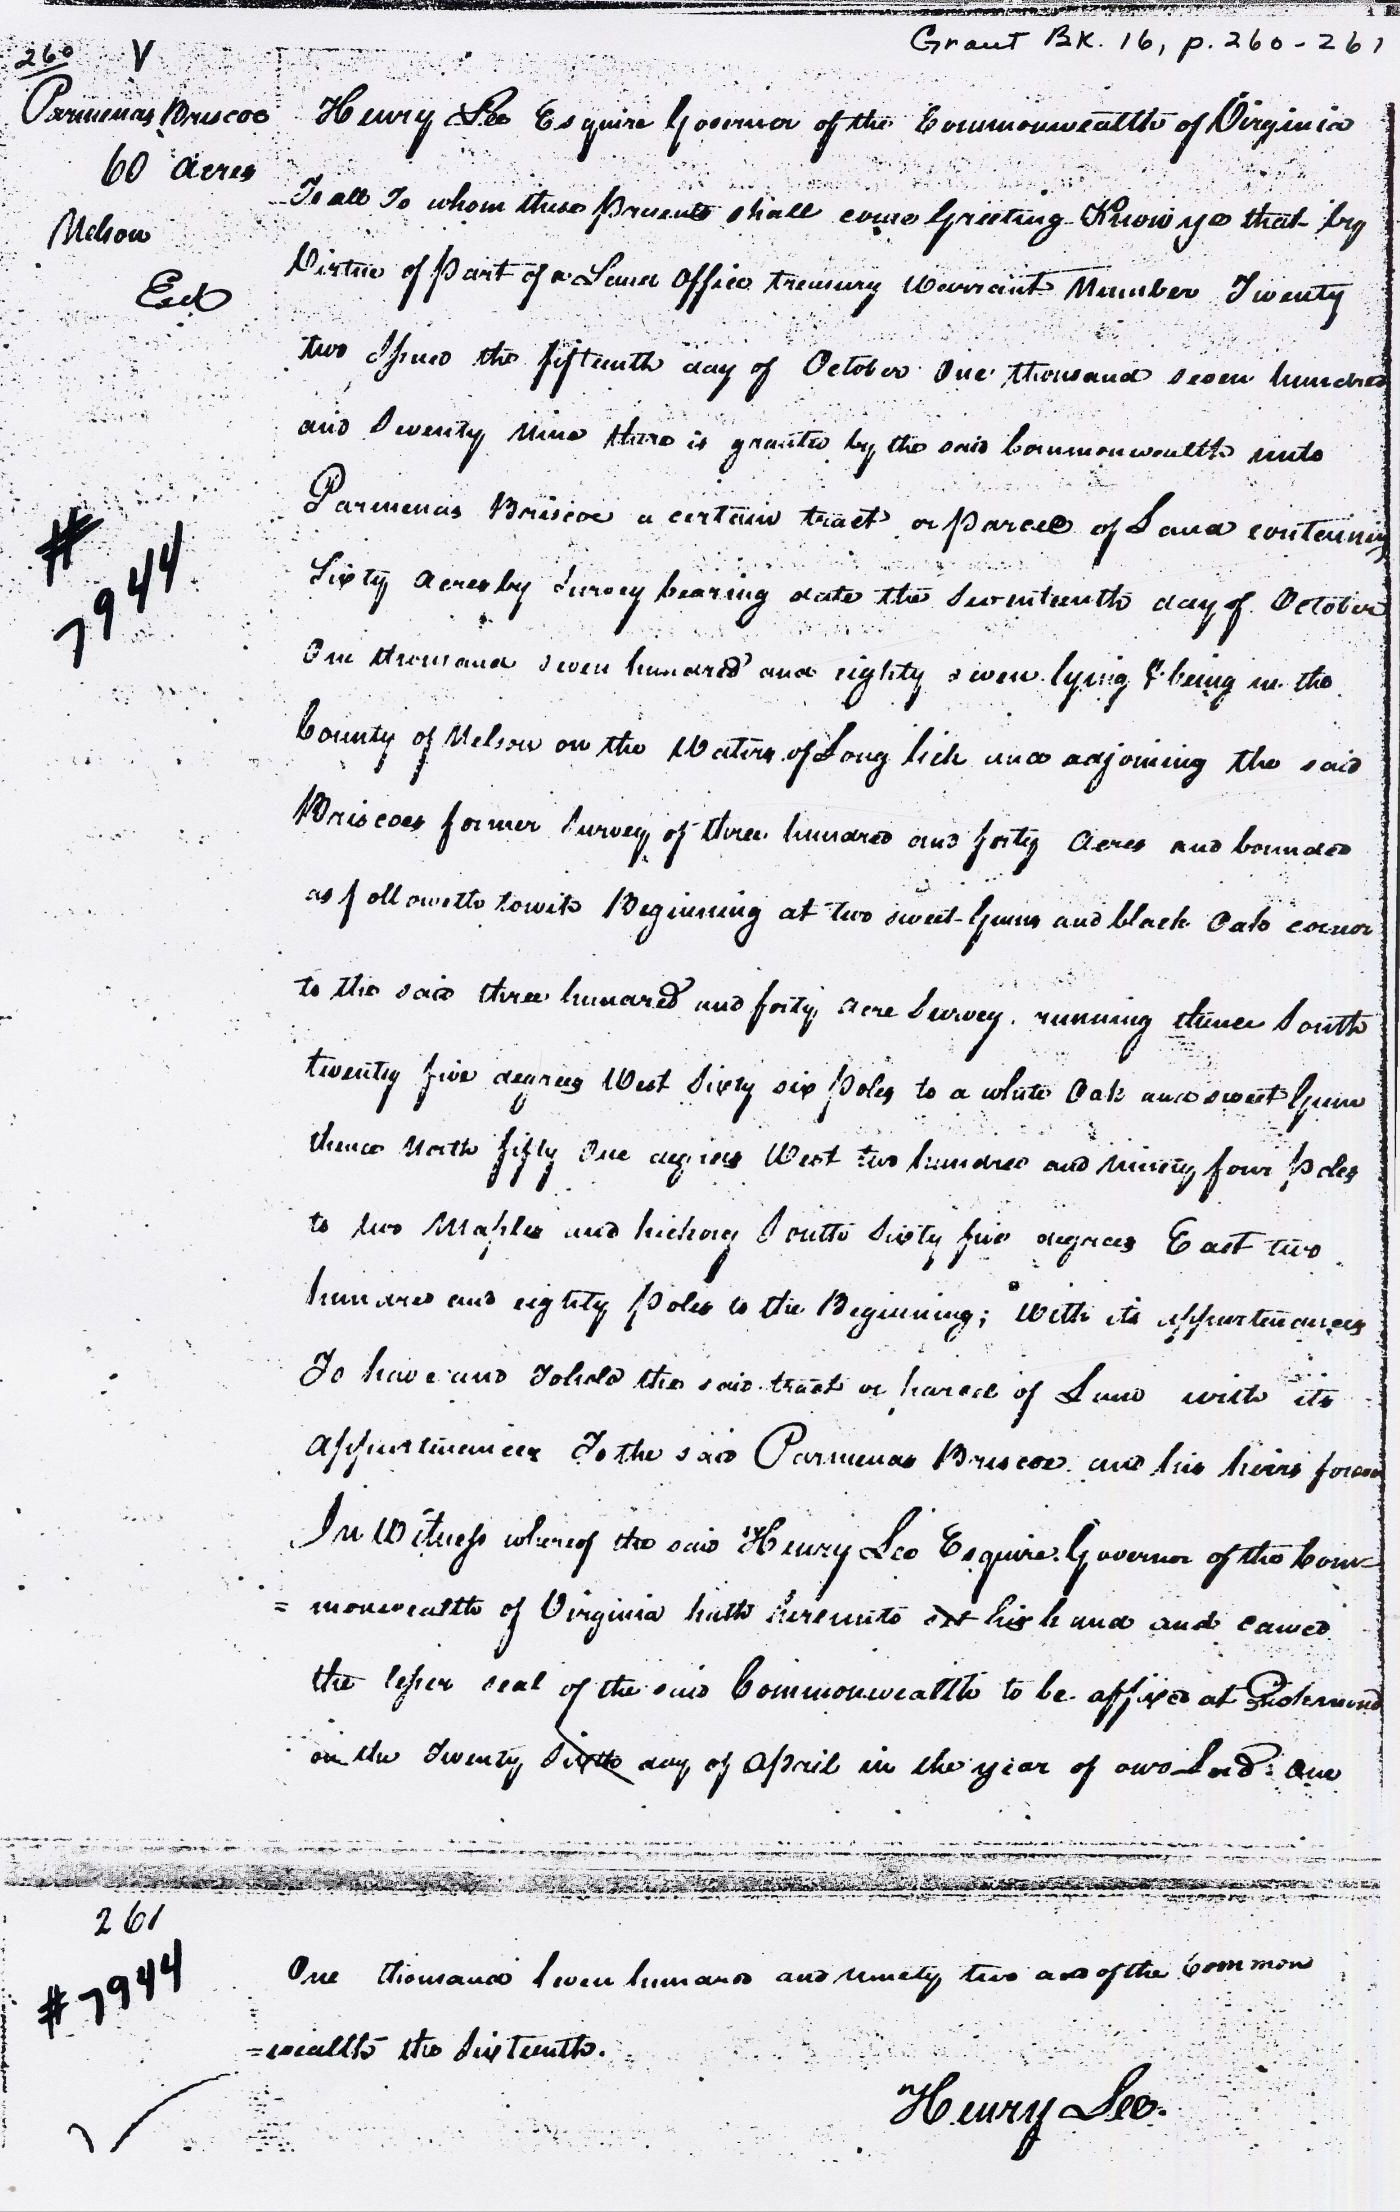 Grant Bk. 16, p. 260-261
260 V
Parmenas Briscoe
60 Acres
Nelson
Exd
# 7944
Henry Lee Esquire Governor of the Commonwealth of Virginia
To all To whom these presents shall come Greeting Know ye that by
Virtue of part of a Land Office treasury Warrant Number Twenty
two Issued the fifteenth day of October One thousand seven hundred
and Seventy Nine there is granted by the said Commonwealth unto
Parmenas Briscoe a certain tract or parcel of Land containing
Sixty Acres by Survey bearing date the Seventeenth day of October
One thousand seven hundred and eighty seven lying & being in the
County of Nelson on the Waters of Long lick and adjoining the said
Briscoes former Survey of three hundred and forty Acres and bounded
as followeth towit Beginning at two sweet Gums and black Oak corner
to the said three hundred and forty Acre Survey. running thence South
twenty five degrees West Sixty six poles to a white Oak and sweet Gum
thence North fifty One degrees West two hundred and ninety four poles
to two Maples and hickory South Sixty five degrees East two
hundred and eighty poles to the Beginning; With its appurtenances
To have and To hold the said tract or parcel of Land with its
appurtenances To the said Parmenas Briscoe and his heirs forever
In Witness whereof the said Henry Lee Esquire Governor of the Com=
=monwealth of Virginia hath hereunto set his hand and caused
the lesser seal of the said Commonwealth to be affixed at Richmond
on the Twenty Sixth day of April in the year of our Lord One
261
#7944
One thousand Seven hundred and ninety two and of the Common
=wealth the Sixteenth.
Henry Lee.